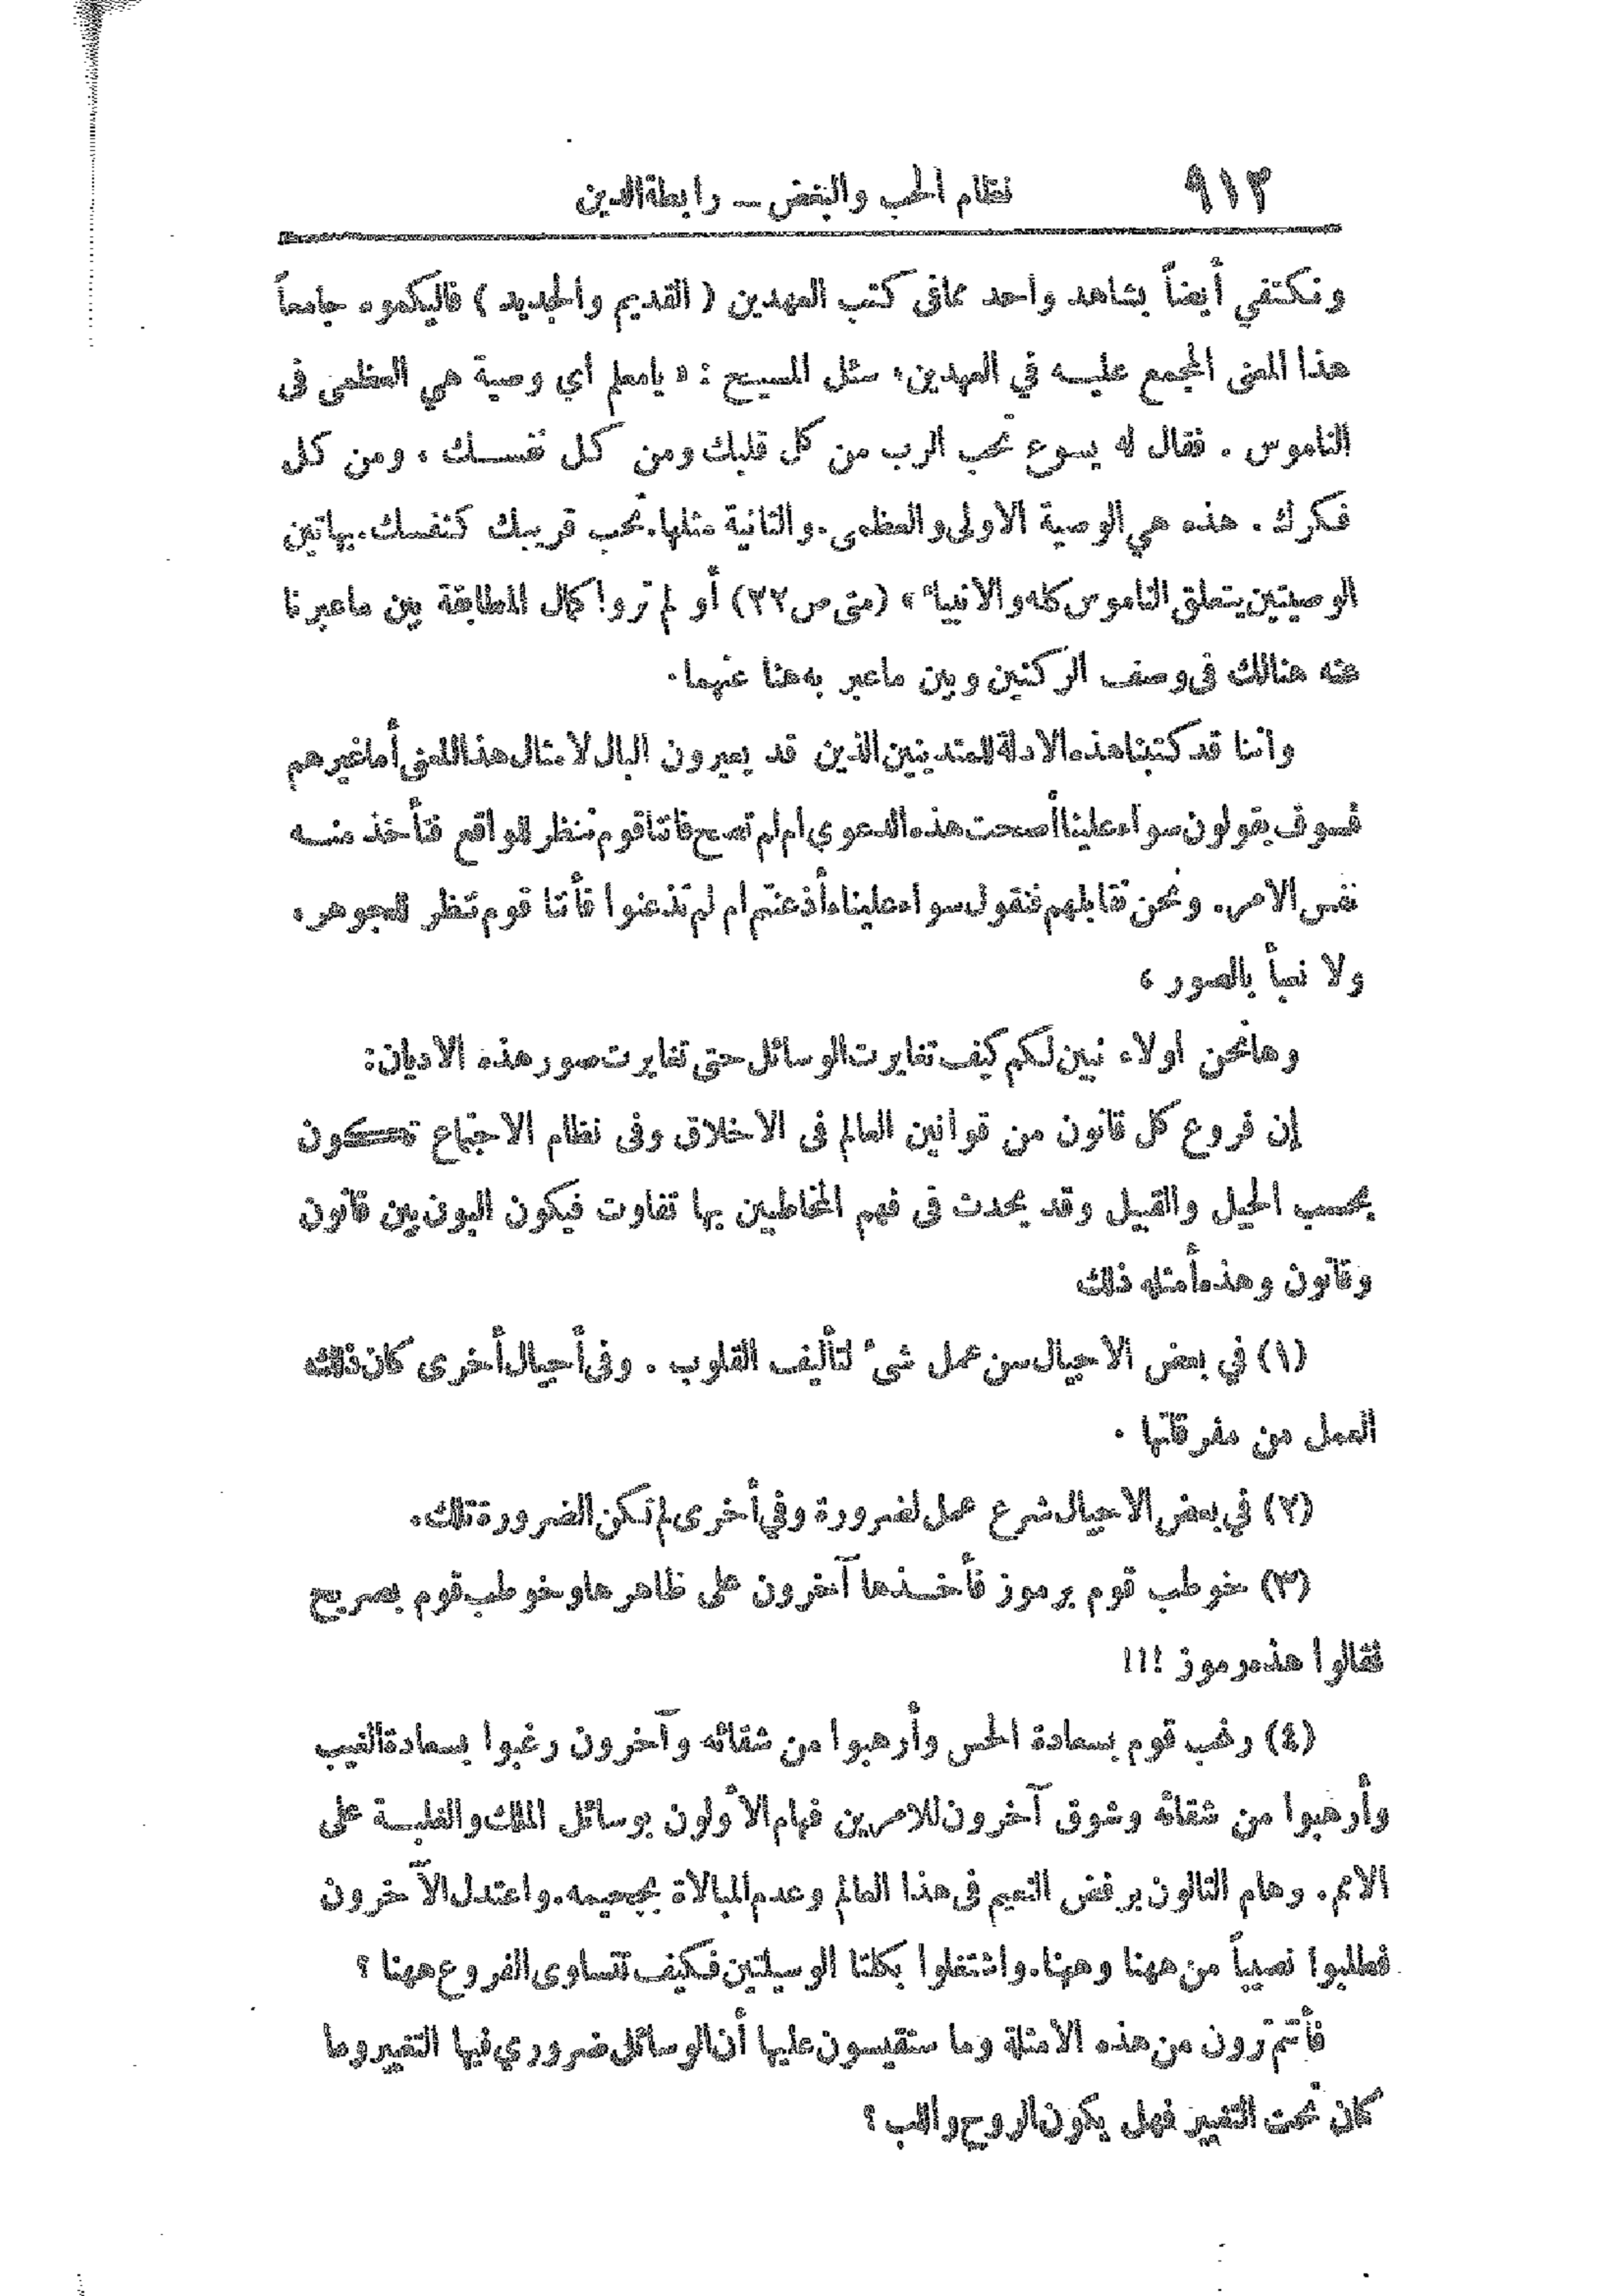 ٩١٣ نظام الحب والبغض — رابطة الدين
ونكتفي أيضاً بشاهد واحد مما في كتب العهدين ( القديم والجديد ) فاليكموه جامعاً
هذا المعنى المجمع عليه في العهدين، سئل المسيح : « يامعلم أي وصية هي العظمى فى
الناموس . فقال له يسوع تحب الرب من كل قلبك ومن كل نفسك ، ومن كل
فكرك . هذه هي الوصية الاولى والعظمى. والثانية مثلها. تحب قريبك كنفسك. بهاتين
الوصيتين يتعلق الناموس كله والانبياء » (متى ص ٢٢) أو لم تروا كمال المطابقة بين ماعبرنا
عنه هنالك فى وصف الركنين وبين ماعبر به هنا عنهما.
واننا قد كتبنا هذه الادلة للمتدينين الذين قد يعيرون البال لامثال هذا المعنى أما غيرهم
فسوف يقولون سواء علينا أصحت هذه الدعوي ام لم تصح فاننا قوم ننظر للواقع فنأخذ منه
نفس الامر. ونحن نقابلهم فنقول سواء علينا ءأذعنتم ام لم تذعنوا فأننا قوم ننظر للجوهر،
ولا نعبأ بالصور ،
وها نحن اولاء نبين لكم كيف تغايرت الوسائل حتى تغايرت صور هذه الاديان:
إن فروع كل قانون من قوانين العالم فى الاخلاق وفى نظام الاجتماع تكون
بحسب الجيل والقبيل وقد يحدث فى فهم المخاطبين بها تفاوت فيكون البون بين قانون
وقانون وهذه أمثله ذلك
(١) في بعض الاجيال سن عمل شئ لتأليف القلوب . وفى أجيال أخرى كان ذلك
العمل من مفرقاتها .
(٢) في بعض الاجيال شرع عمل لضرورة وفي أخرى لم تكن الضرورة تلك.
(٣) خوطب قوم برموز فأخذها آخرون على ظاهرها وخوطب قوم بصريح
فقالوا هذه رموز !!!
(٤) رغب قوم بسعادة الحس وأرهبوا من شقائه وآخرون رغبوا بسعادة الغيب
وأرهبوا من شقائه وشوق آخرون للامرين فهام الأولون بوسائل الملك والغلبة على
الامم. وهام التالون برفض النعيم فى هذا العالم وعدم المبالاة بجحيمه. واعتدل الآخرون
فطلبوا نصيباً من ههنا وههنا. واشتغلوا بكلتا الوسيلتين فكيف تتساوى الفروع ههنا ؟
فأنتم ترون من هذه الامثلة وما ستقيسون عليها أن الوسائل ضروري فيها التغيير وما
كان تحت التغيير فهل يكون الروح واللب ؟